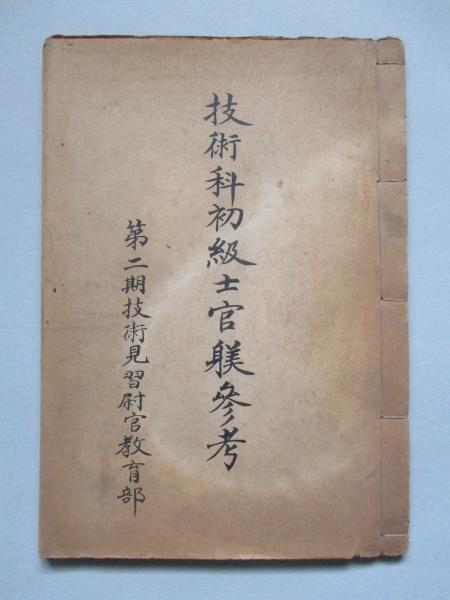 技術科初級士官躾參考
第二期技術見習尉官教育部